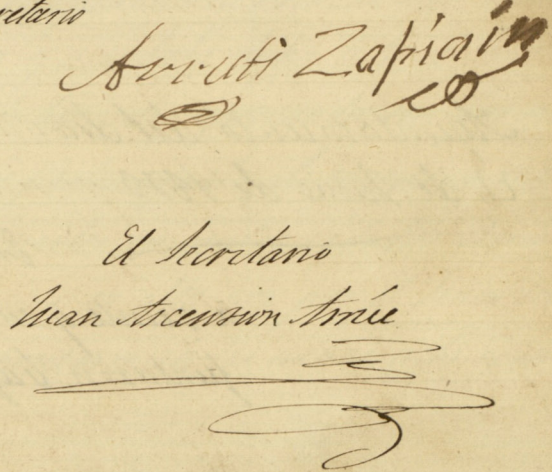 Arruti Zapiain
El Secretario
Juan Ascension Arnée